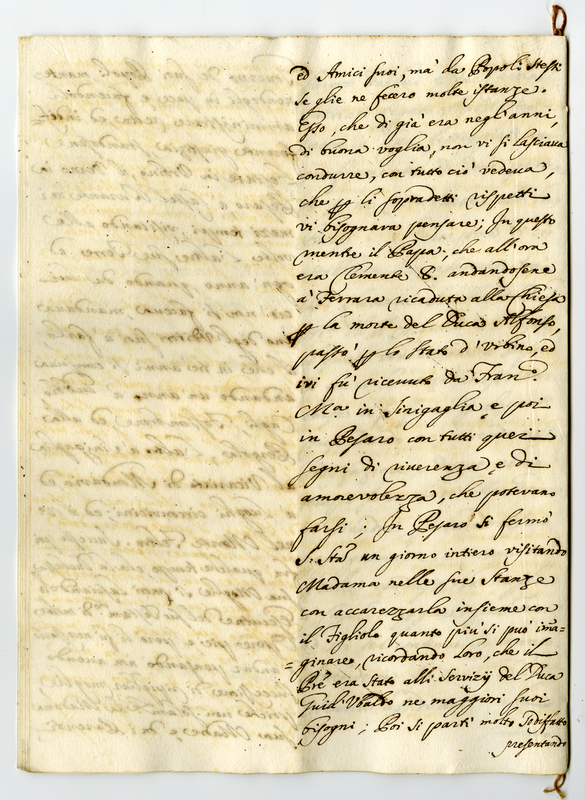 ed Amici suoi, mà da Popoli Stessi
se glie ne fecero molte istanze.
Esso, che di già era negl'anni,
di buona voglia, non vi si lasciaua
condurre, con tutto ciò vedeua,
che li sopradetti rispetti
vi bisognaua pensare; In questo
mentre il Papa, che all'ora
era Clemente 8. andandosene
à Ferrara ricaduta alla Chiesa
la morte del Duca Alfonso,
passò lo Stato d'Vrbino, ed
ivi fù riceuuto da Fran.º
M.ª in Sinigaglia e poi
in Pesaro con tutti quei
segni di riuerenza e di
amoreuolezza, che poteuano
farsi; In Pesaro si fermò
S. Stà un giorno intiero visitando
Madama nelle sue Stanze
con accarezzarla insieme con
il Figliolo quanto più si può ima=
=ginare, ricordando loro, che il
Prê era Stato alli Servizij del Duca
Guid'Vbaldo ne maggiori suoi
bisogni; Poi si partì molto sodisfatto
presentando